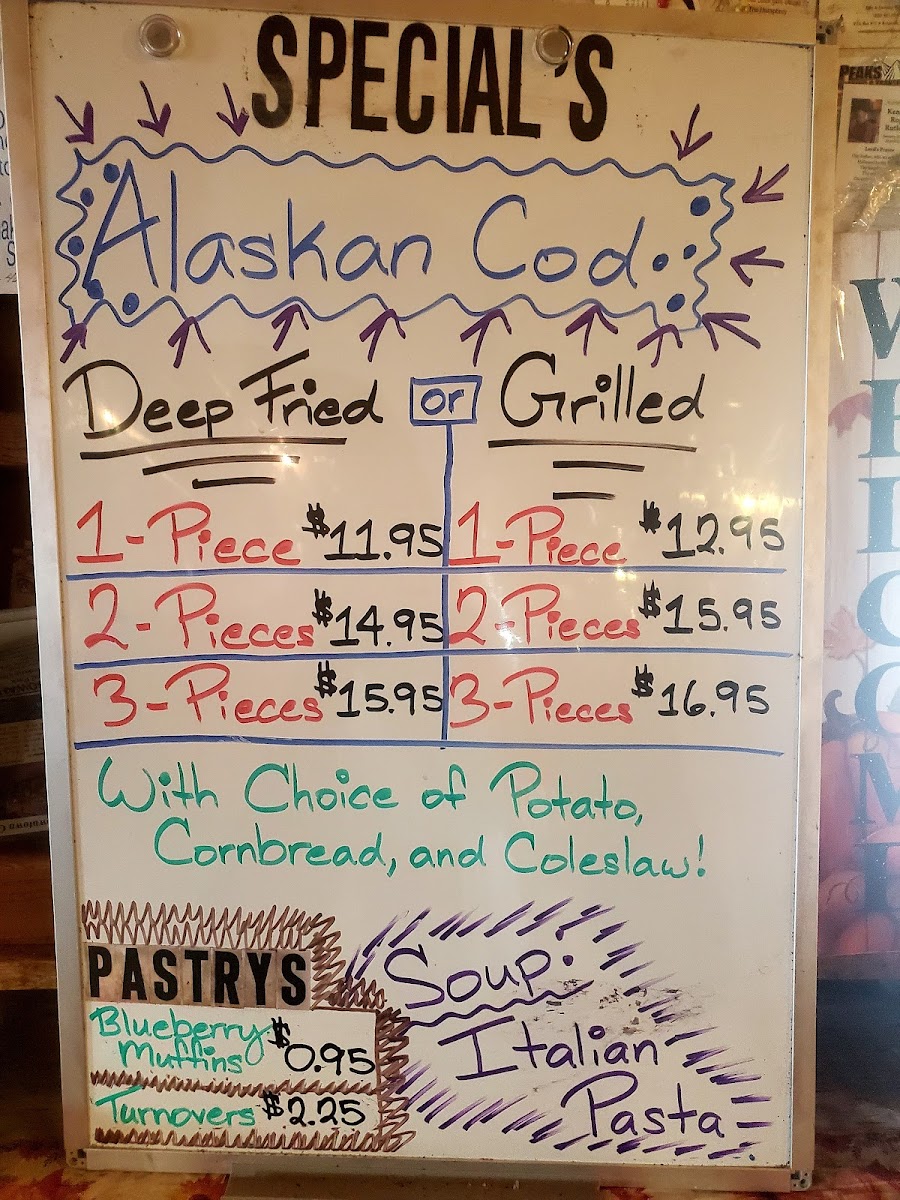 SPECIAL'S
Alaskan Cod
Deep Fried or Grilled
1-Piece $11.95 1-Piece $12.95
2-Pieces $14.95 2-Pieces $15.95
3-Pieces $15.95 3-Pieces $16.95
With Choice of Potato,
Cornbread, and Coleslaw!
PASTRYS
Blueberry
Muffins $0.95
Turnovers $2.25
Soup:
Italian
Pasta
PEAKS